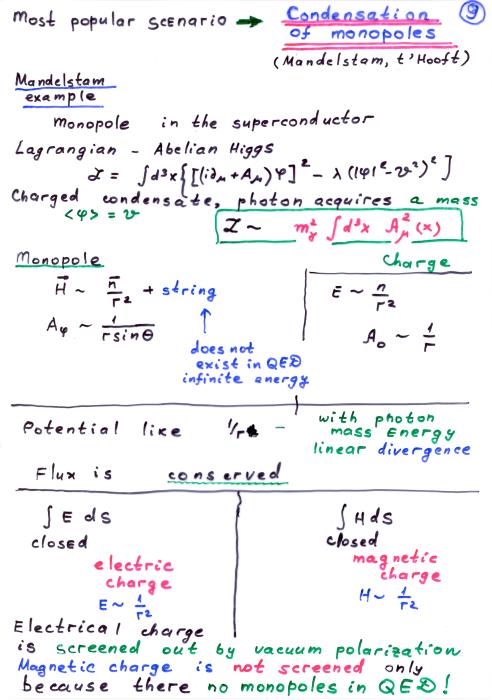 Most popular scenario → Condensation of monopoles
9
(Mandelstam, t'Hooft)
Mandelstam example
monopole in the superconductor
Lagrangian - Abelian Higgs
ℒ = ∫d³x{[(i∂μ + Aμ)φ]² - λ(|φ|² - v²)²]
Charged condensate, photon acquires a mass
<φ> = v
ℒ ~ m²γ ∫d³x A²μ(x)
Monopole
H⃗ ~ n⃗/r² + string
Aφ ~ 1/(r sinθ)
does not
exist in QED
infinite anergy
Charge
E ~ n/r²
A₀ ~ 1/r
Potential like 1/r -
with photon
mass Energy
linear divergence
Flux is conserved
∫ E dS
closed
electric
charge
E ~ 1/r²
∫ H dS
closed
magnetic
charge
H ~ 1/r²
Electrical charge
is screened out by vacuum polarization
Magnetic charge is not screened only
because there no monopoles in QED!